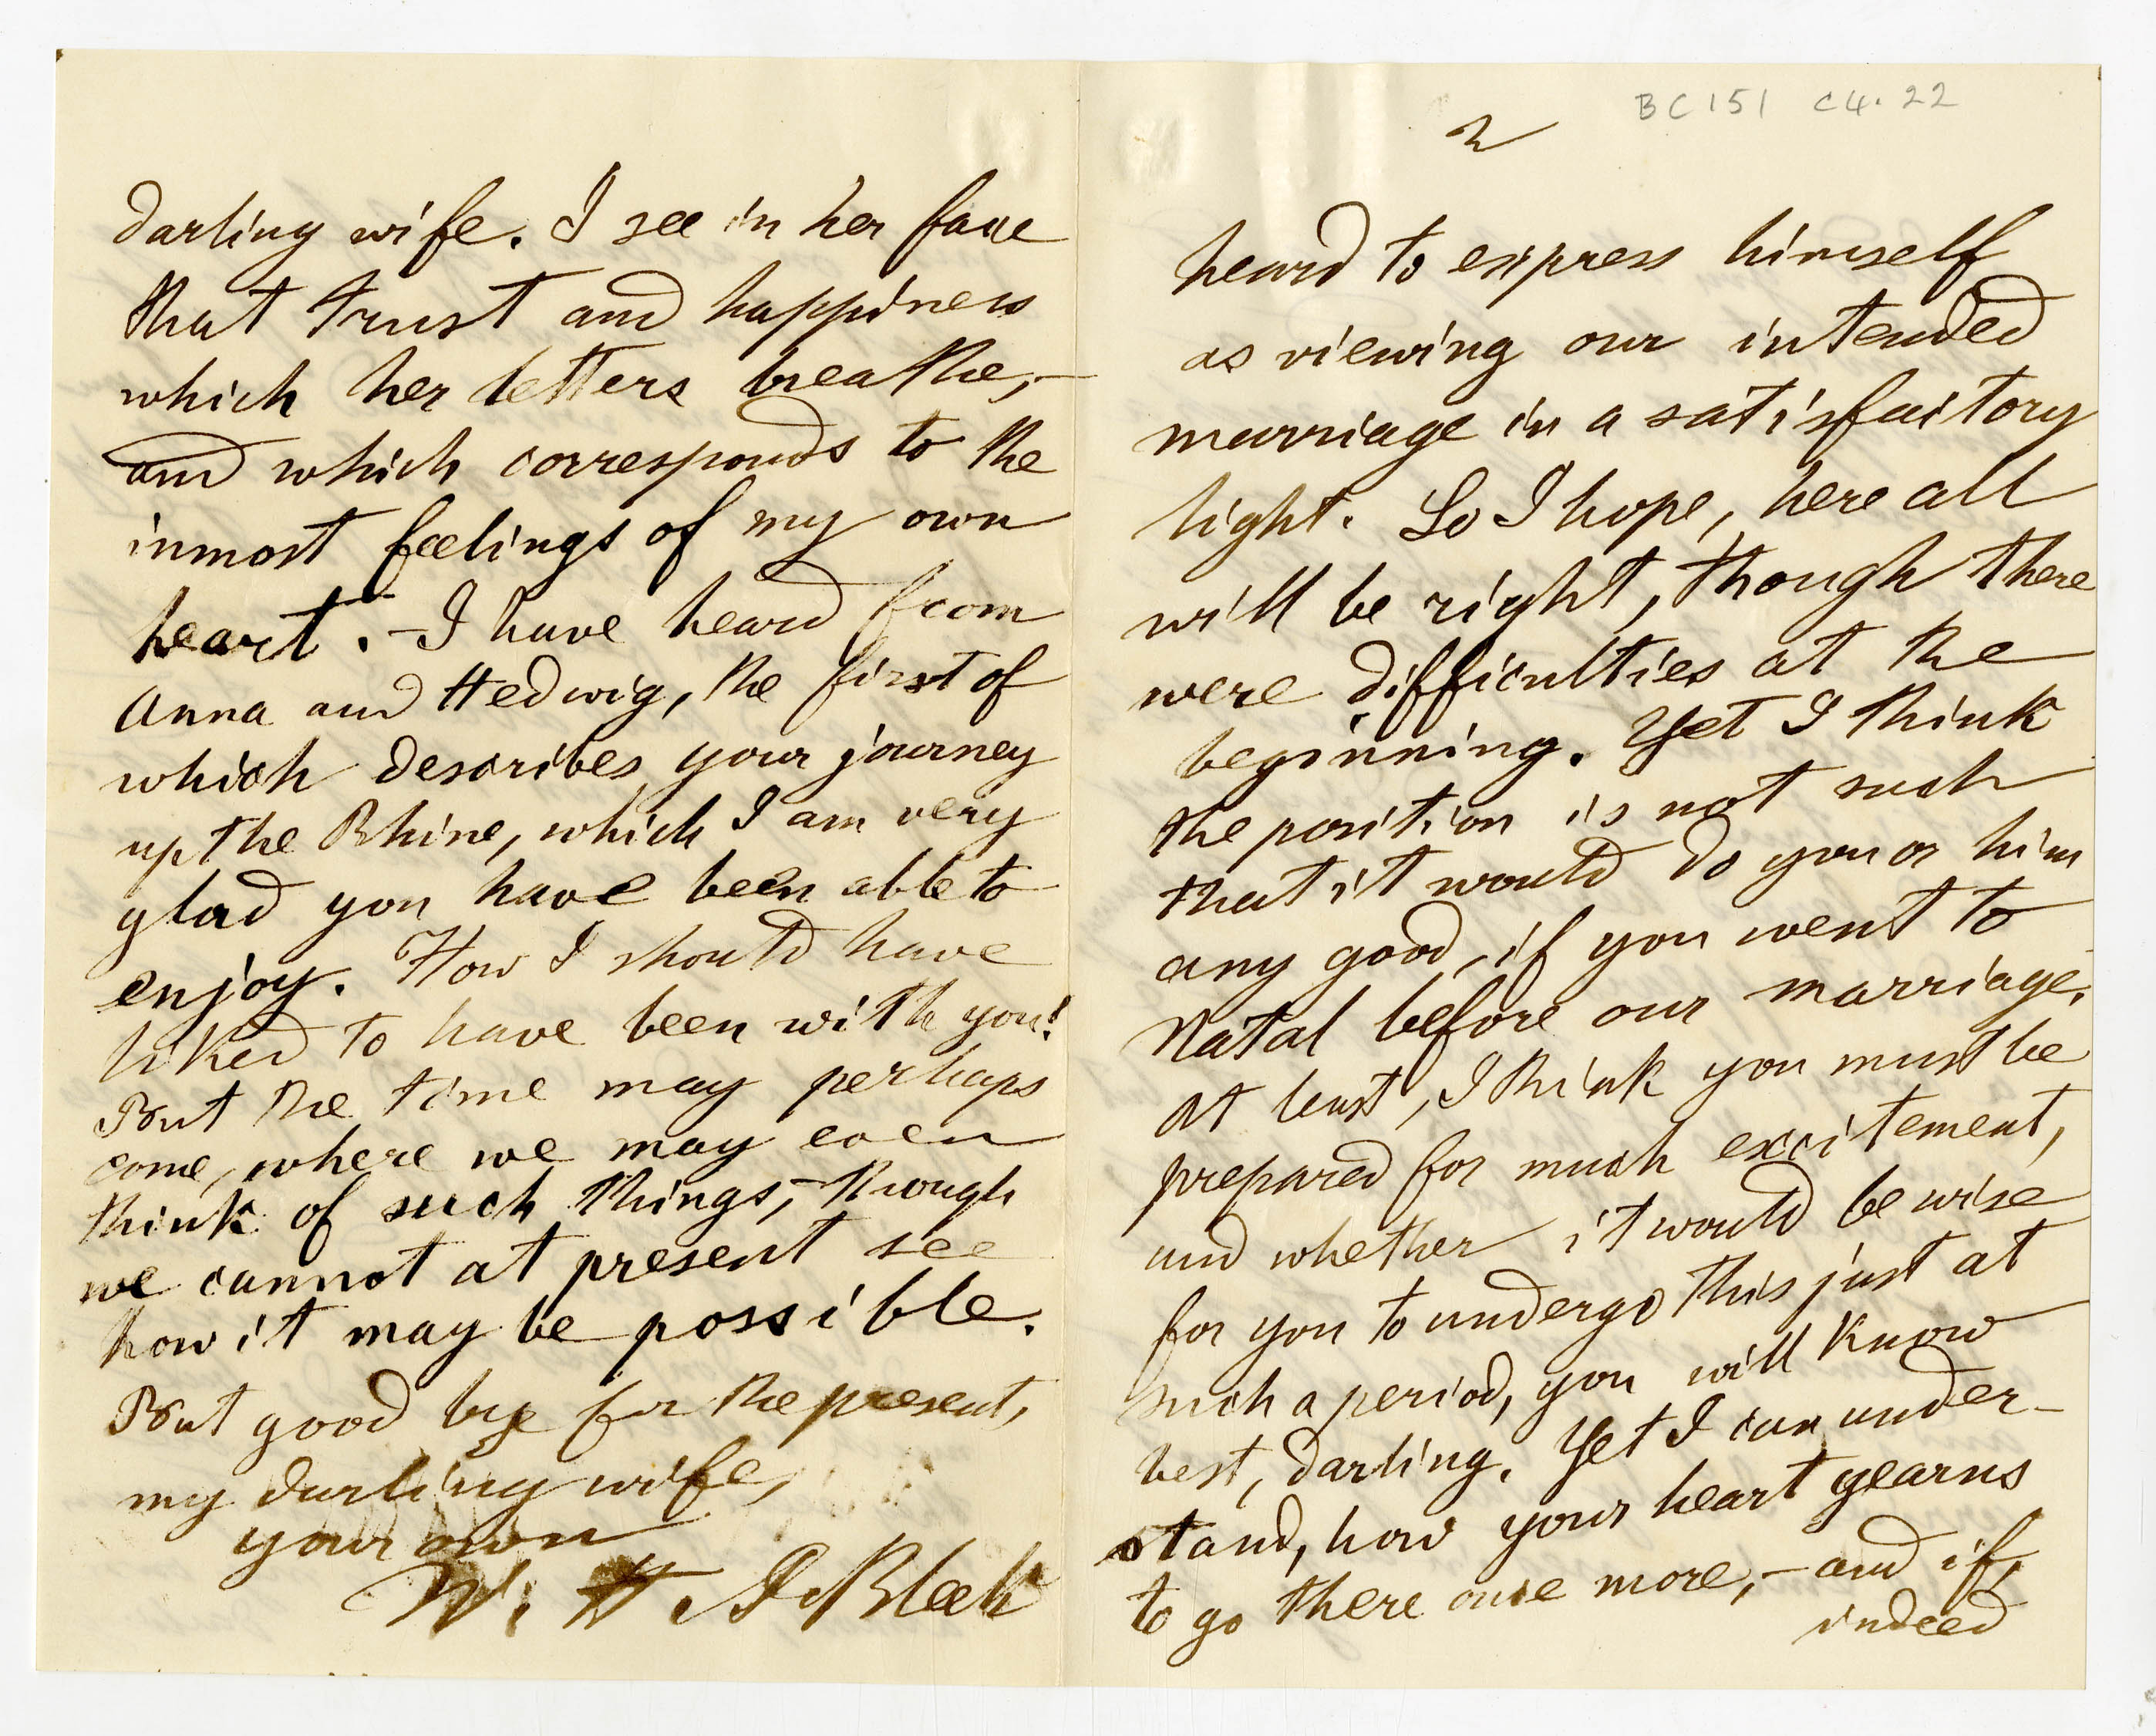 darling wife. I see in her face
that trust and happiness
which her letters breathe,-
and which corresponds to the
inmost feelings of my own
heart. - I have heard from
Anna and Hedwig, the first of
which describes your journey
up the Rhine, which I am very
glad you have been able to
enjoy. How I should have
liked to have been with you!
But the time may perhaps
come, where we may even
think of such things, - though
we cannot at present see
how it may be possible.
But good bye for the present,
my darling wife,
your own
W. H. I. Bleek
BC151 C4.22
2
heard to express himself
as viewing our intended
marriage in a satisfactory
light. So I hope, here all
will be right, though there
were difficulties at the
beginning. Yet I think
the position is not such
that it would do you or him
any good, if you went to
Natal before our marriage.
At least, I think you must be
prepared for much excitement,
and whether it would be wise
for you to undergo this just at
such a period, you will know
best, darling. Yet I can under-
stand, how your heart yearns
to go there once more, - and if,
indeed